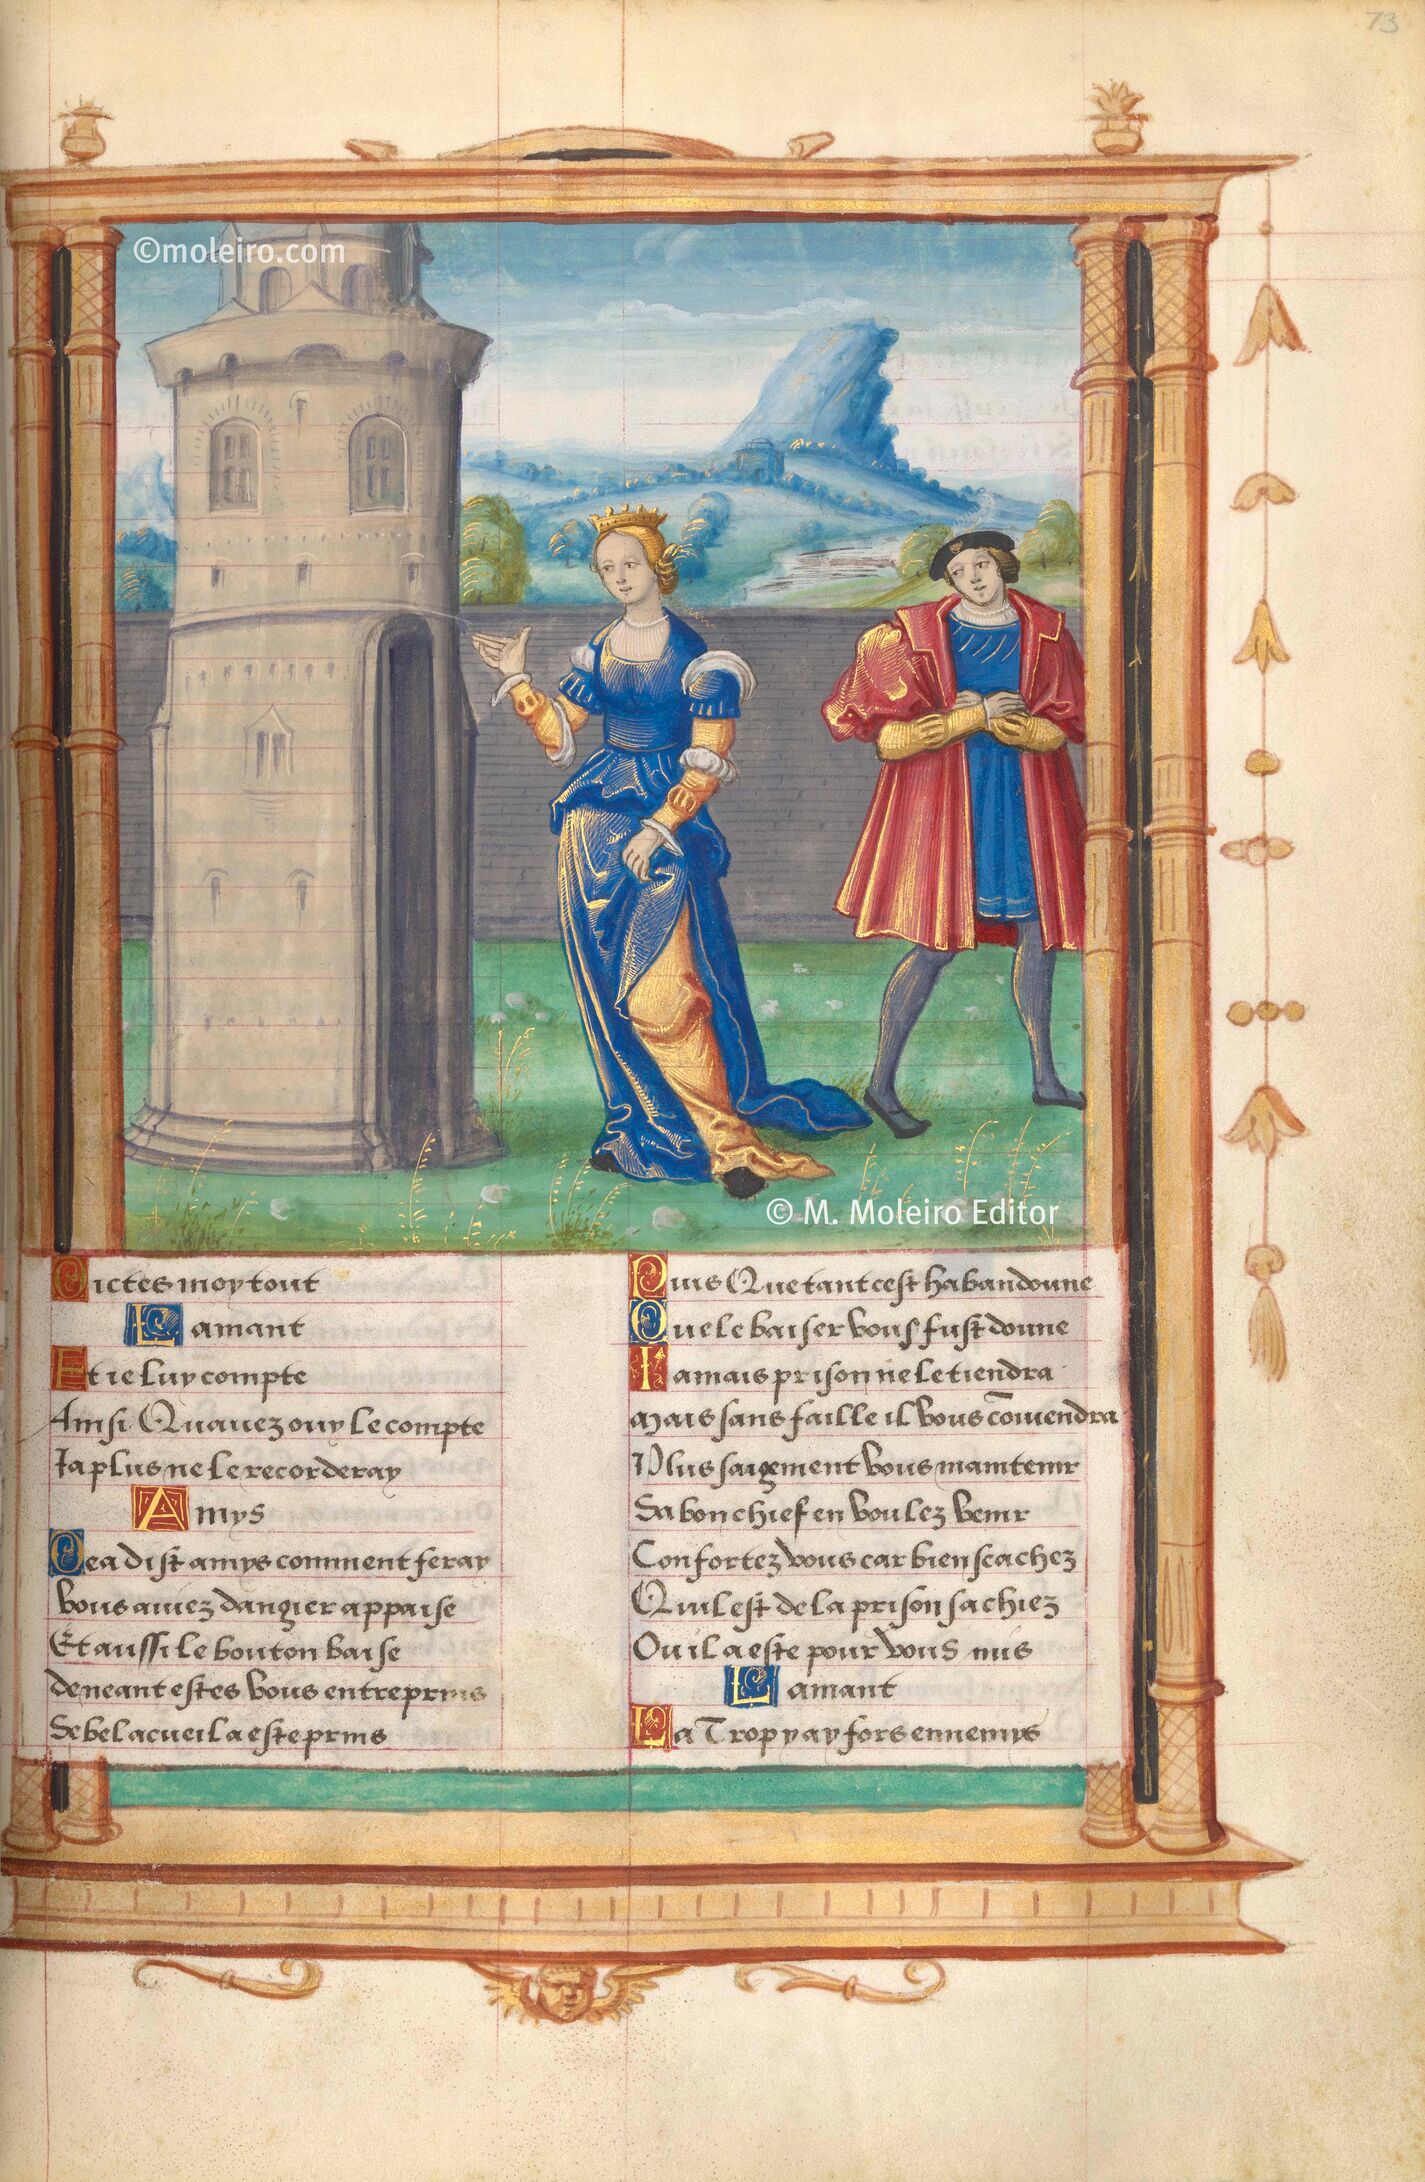 73
©moleiro.com
© M. Moleiro Editor
Dictes moy tout
Lamant
Et ie luy compte
Ainsi Quauez ouy le compte
Ia plus ne le recorderay
Amys
Dea dist amys comment feray
Vous auiez dangier appaise
Et aussi le bouton baise
de neant estes vous entreprins
Se bel acueil a este prins
Puis Que tant cest habandonne
Que le baiser vous fust donne
Iamais prison ne le tiendra
Mais sans faille il vous cōuiendra
Plus saigement vous maintenir
Sa bon chief en voulez venir
Confortez vous car bien scachez
Quil est de la prison sachiez
Ou il a este pour vous mis
Lamant
Ha Trop y ay fors ennemys